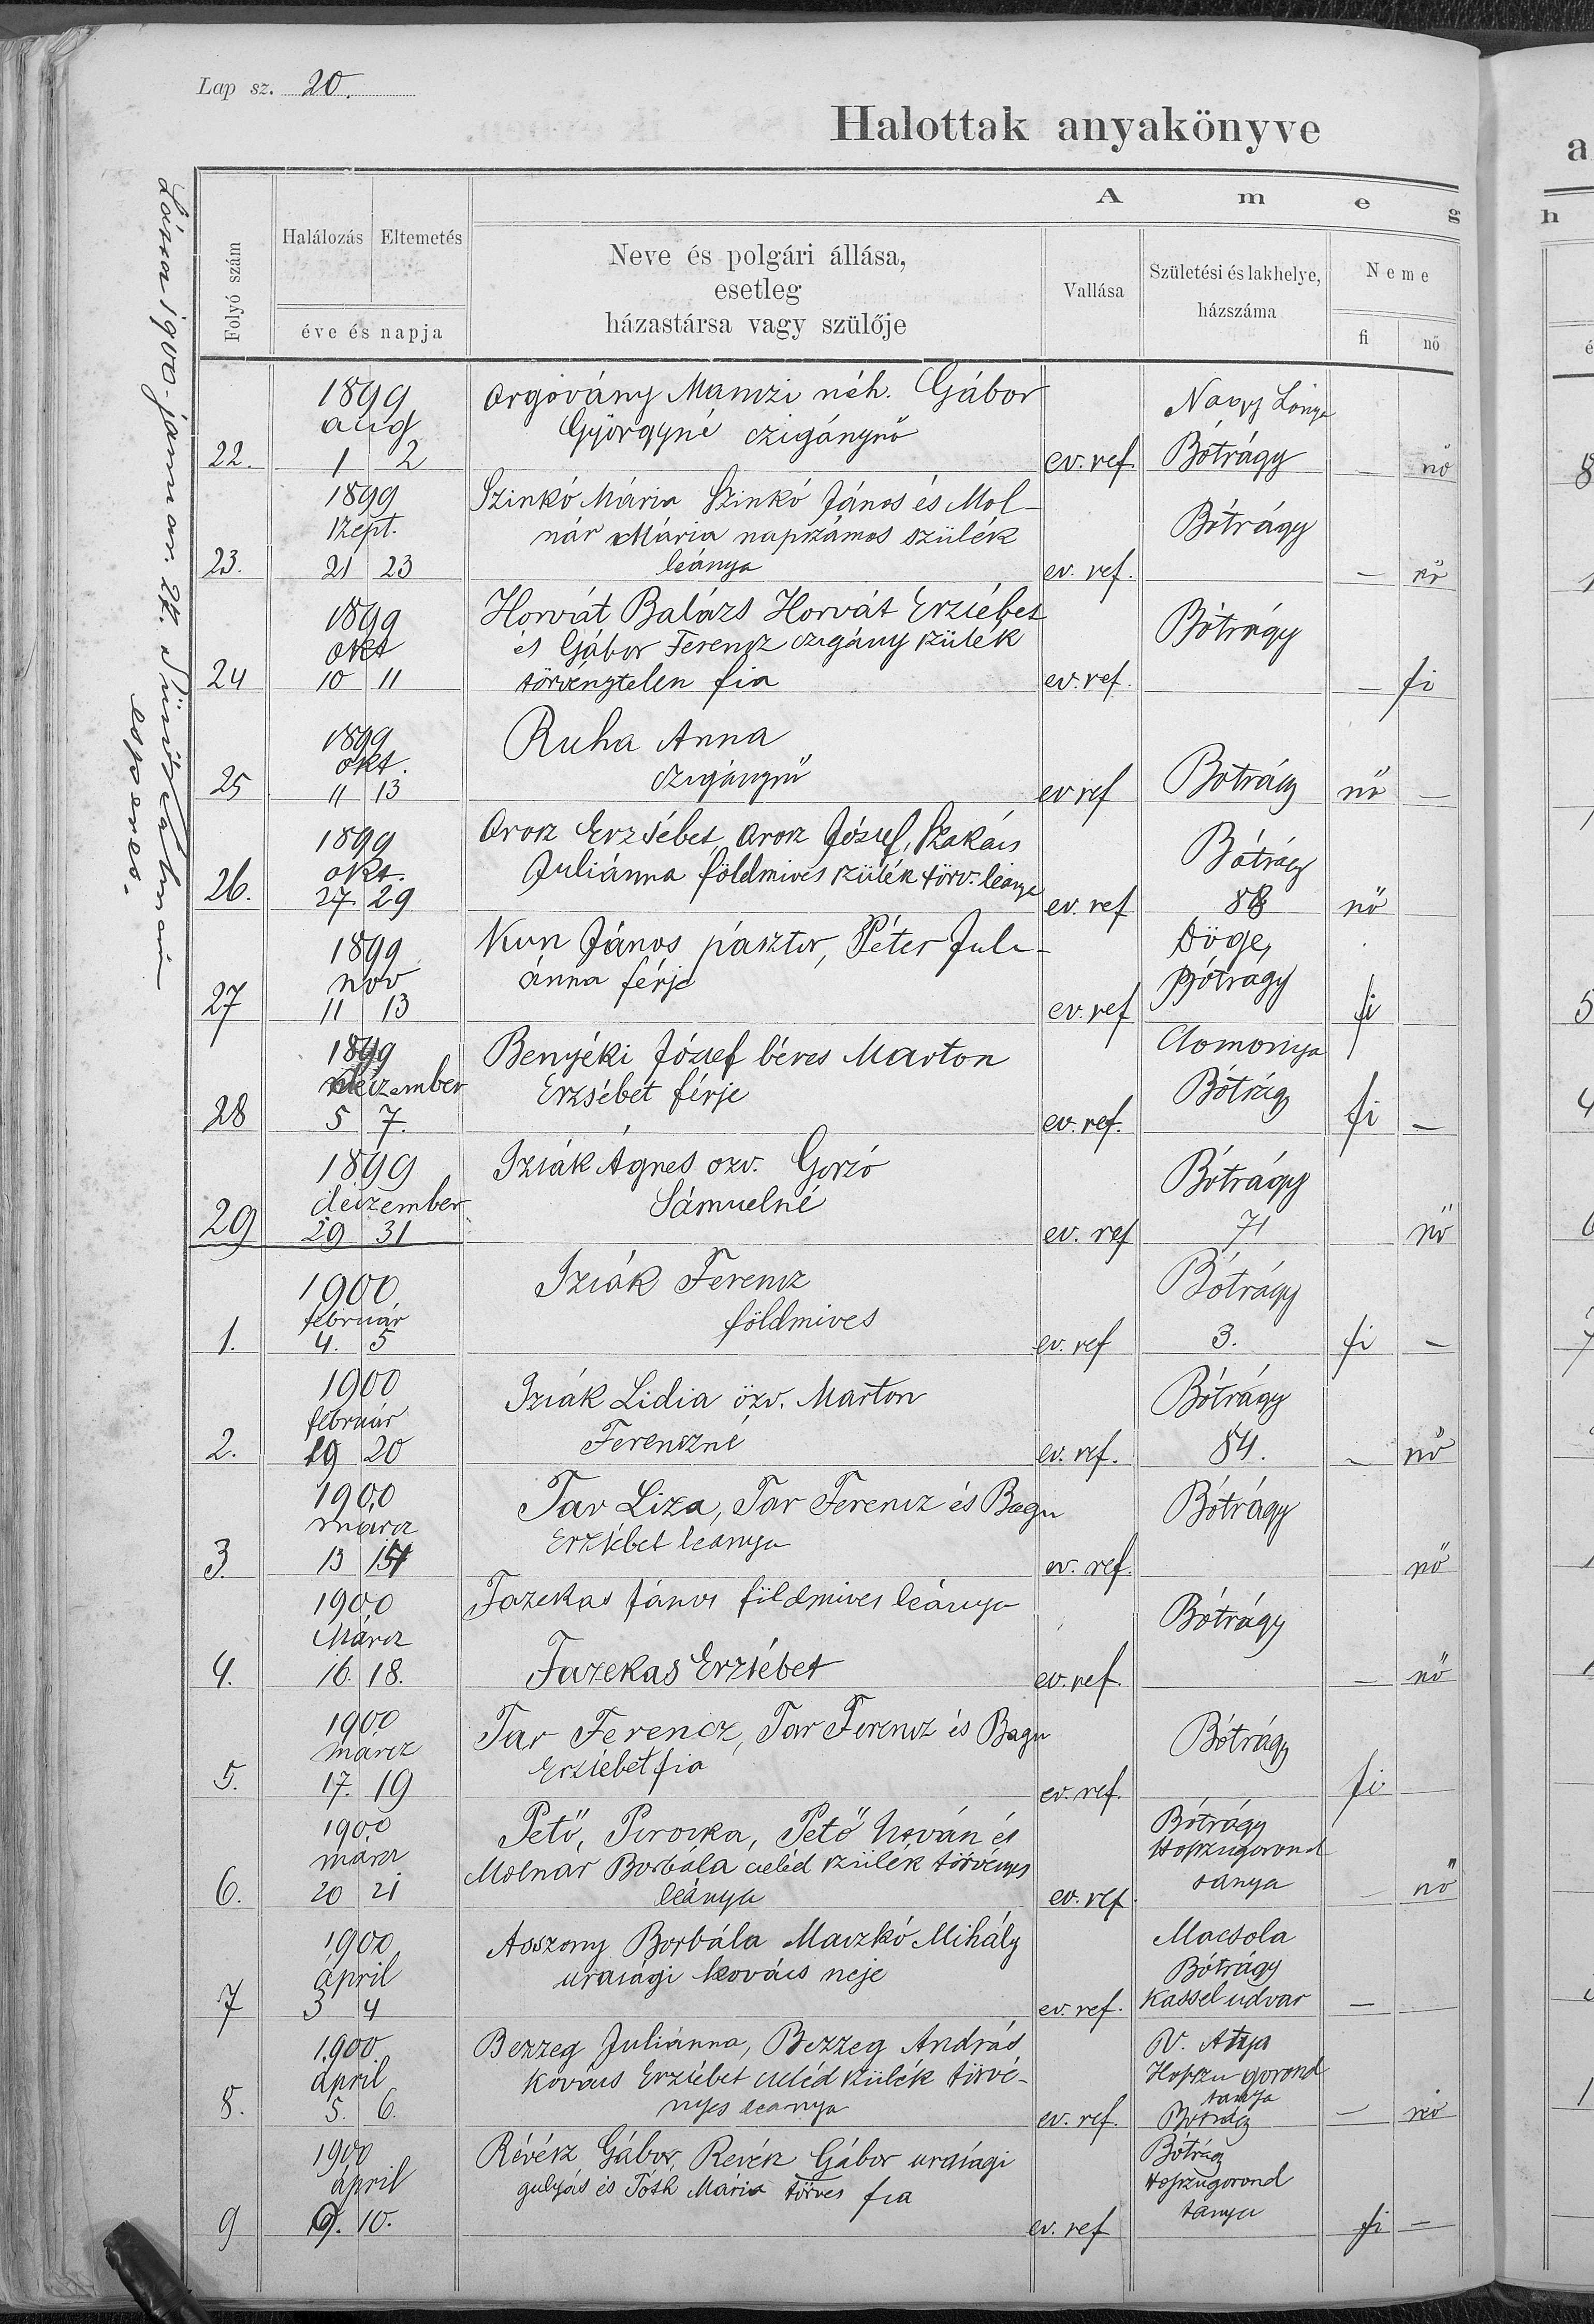 Lap sz. 20.
Halottak anyakönyve
A m e g
Folyó szám
Halálozás
Eltemetés
éve és napja
Neve és polgári állása,
esetleg
házastársa vagy szülője
Vallása
Születési és lakhelye,
házszáma
Neme
fi
nő
1900 januar 27.
esperes.
1899
aug
22. 1 2
Orgovány Manczi néh. Gábor
Györgyné czigánynő
ev. ref.
Nagy Lónya
Bótrágy
— nő
1899
szept.
23. 21 23
Szinkó Mária Szinkó János és Mol-
nár Mária napszámos szülék
leánya
ev. ref.
Bótrágy
— nő
1899
okt
24 10 11
Horvát Balázs Horvát Erzsébet
és Gábor Ferencz czigány szülék
törvénytelen fia
ev. ref.
Bótrágy
— fi
1899
okt.
25 11 13
Ruha Anna
czigánynő
ev ref
Botrágy
nő —
1899
okt.
26. 27. 29
Orosz Erzsébet, Orosz József, Szakács
Juliánna földmives szülék törv. leánya
ev. ref
Bótrágy
88
nő
1899
nov
27 11 13
Kun János pásztor, Péter Juli-
ánna férje
ev. ref
Döge,
Bótragy
fi
1899
deczember
28 5 7.
Benyéki József béres Marton
Erzsébet férje
ev. ref.
Csomonya
Bótrágy
fi —
1899
deczember
29 29 31
Izsák Ágnes özv. Gorzó
Sámuelné
ev. ref
Bótrágy
71
nő
1900
február
1. 4. 5
Izsák Ferencz
földmives
ev. ref
Bótrágy
3.
fi —
1900
február
2. 19 20
Izsák Lidia özv. Marton
Ferenczné
ev. ref.
Bótrágy
84.
- nő
1900
márcz
3. 13
Tar Liza, Tar Ferencz és Bagu
Erzsébet leánya
ev. ref.
Bótrágy
nő
1900
Márcz
4. 16. 18.
Fazekas János földmives leánya
Fazekas Erzsébet
ev. ref.
Bótrágy
— nő
1900
márcz
5. 17. 19
Tar Ferencz, Tar Ferencz és Bagu
Erzsébet fia
ev. ref.
Bótrágy
fi
1900
márcz
6. 20 21
Pető, Piroska, Pető István és
Molnár Borbála cseléd szülék törvényes
leánya
ev. ref.
Bótrágy
Hoszugorond
tanya
— nő
1900
ápril
7 3 4
Asszony Borbála Maczkó Mihály
urasági kovács neje
ev. ref.
Macsola
Bótrágy
Kassel udvar
—
1900
ápril
8. 5. 6.
Bezzeg Juliánna, Bezzeg András
Kovács Erzsébet cseléd szülék törvé-
nyes leánya
ev. ref.
V. Atya
Hoszu gorond
tanya
Botrágy
— nő
1900
ápril
9 9. 10.
Révész Gábor, Revész Gábor urasági
gulyás és Tóth Mária törves fia
ev. ref
Bótrágy
Hoszugorond
tanya
fi —